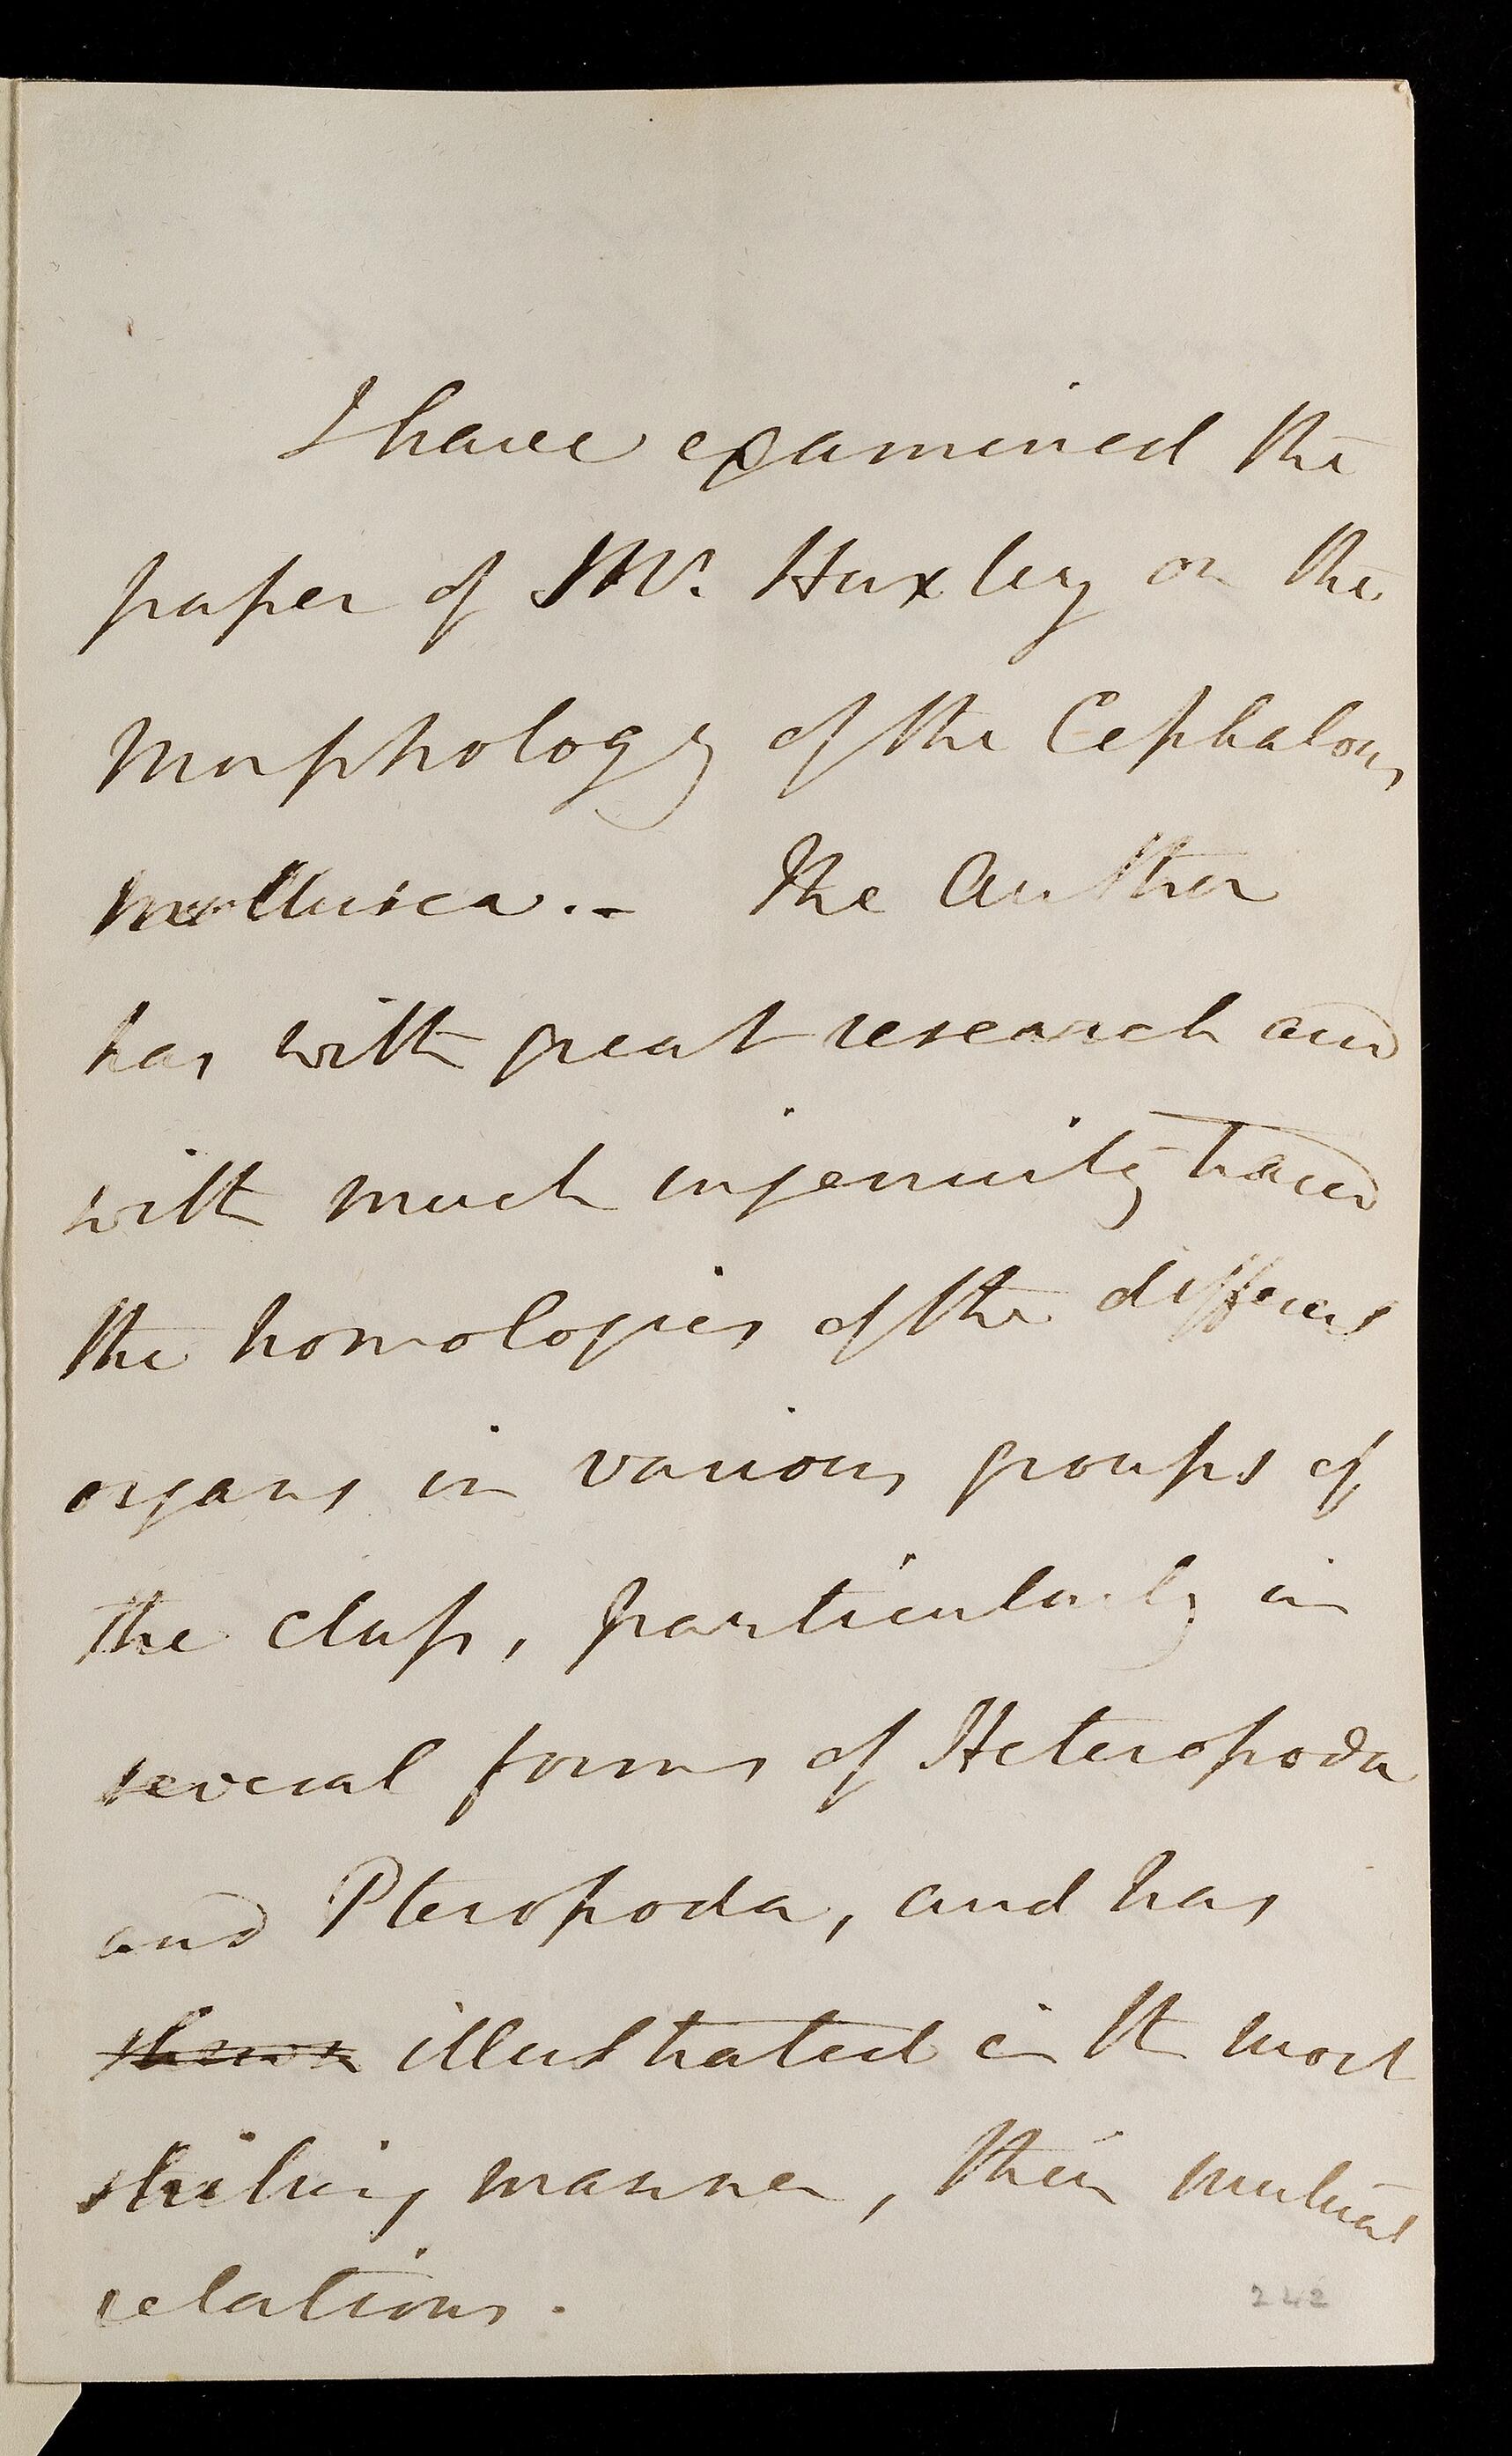 I have examined the
paper of Mr. Huxley on the
Morphology of the Cephalous
Mollusca.- The Author
has with great research and
with much ingenuity traced
the homologies of the different
organs in various groups of
the class, particularly in
several forms of Heteropoda
and Pteropoda, and has
shewn illustrated in the most
striking manner, their mutual
relations.
242